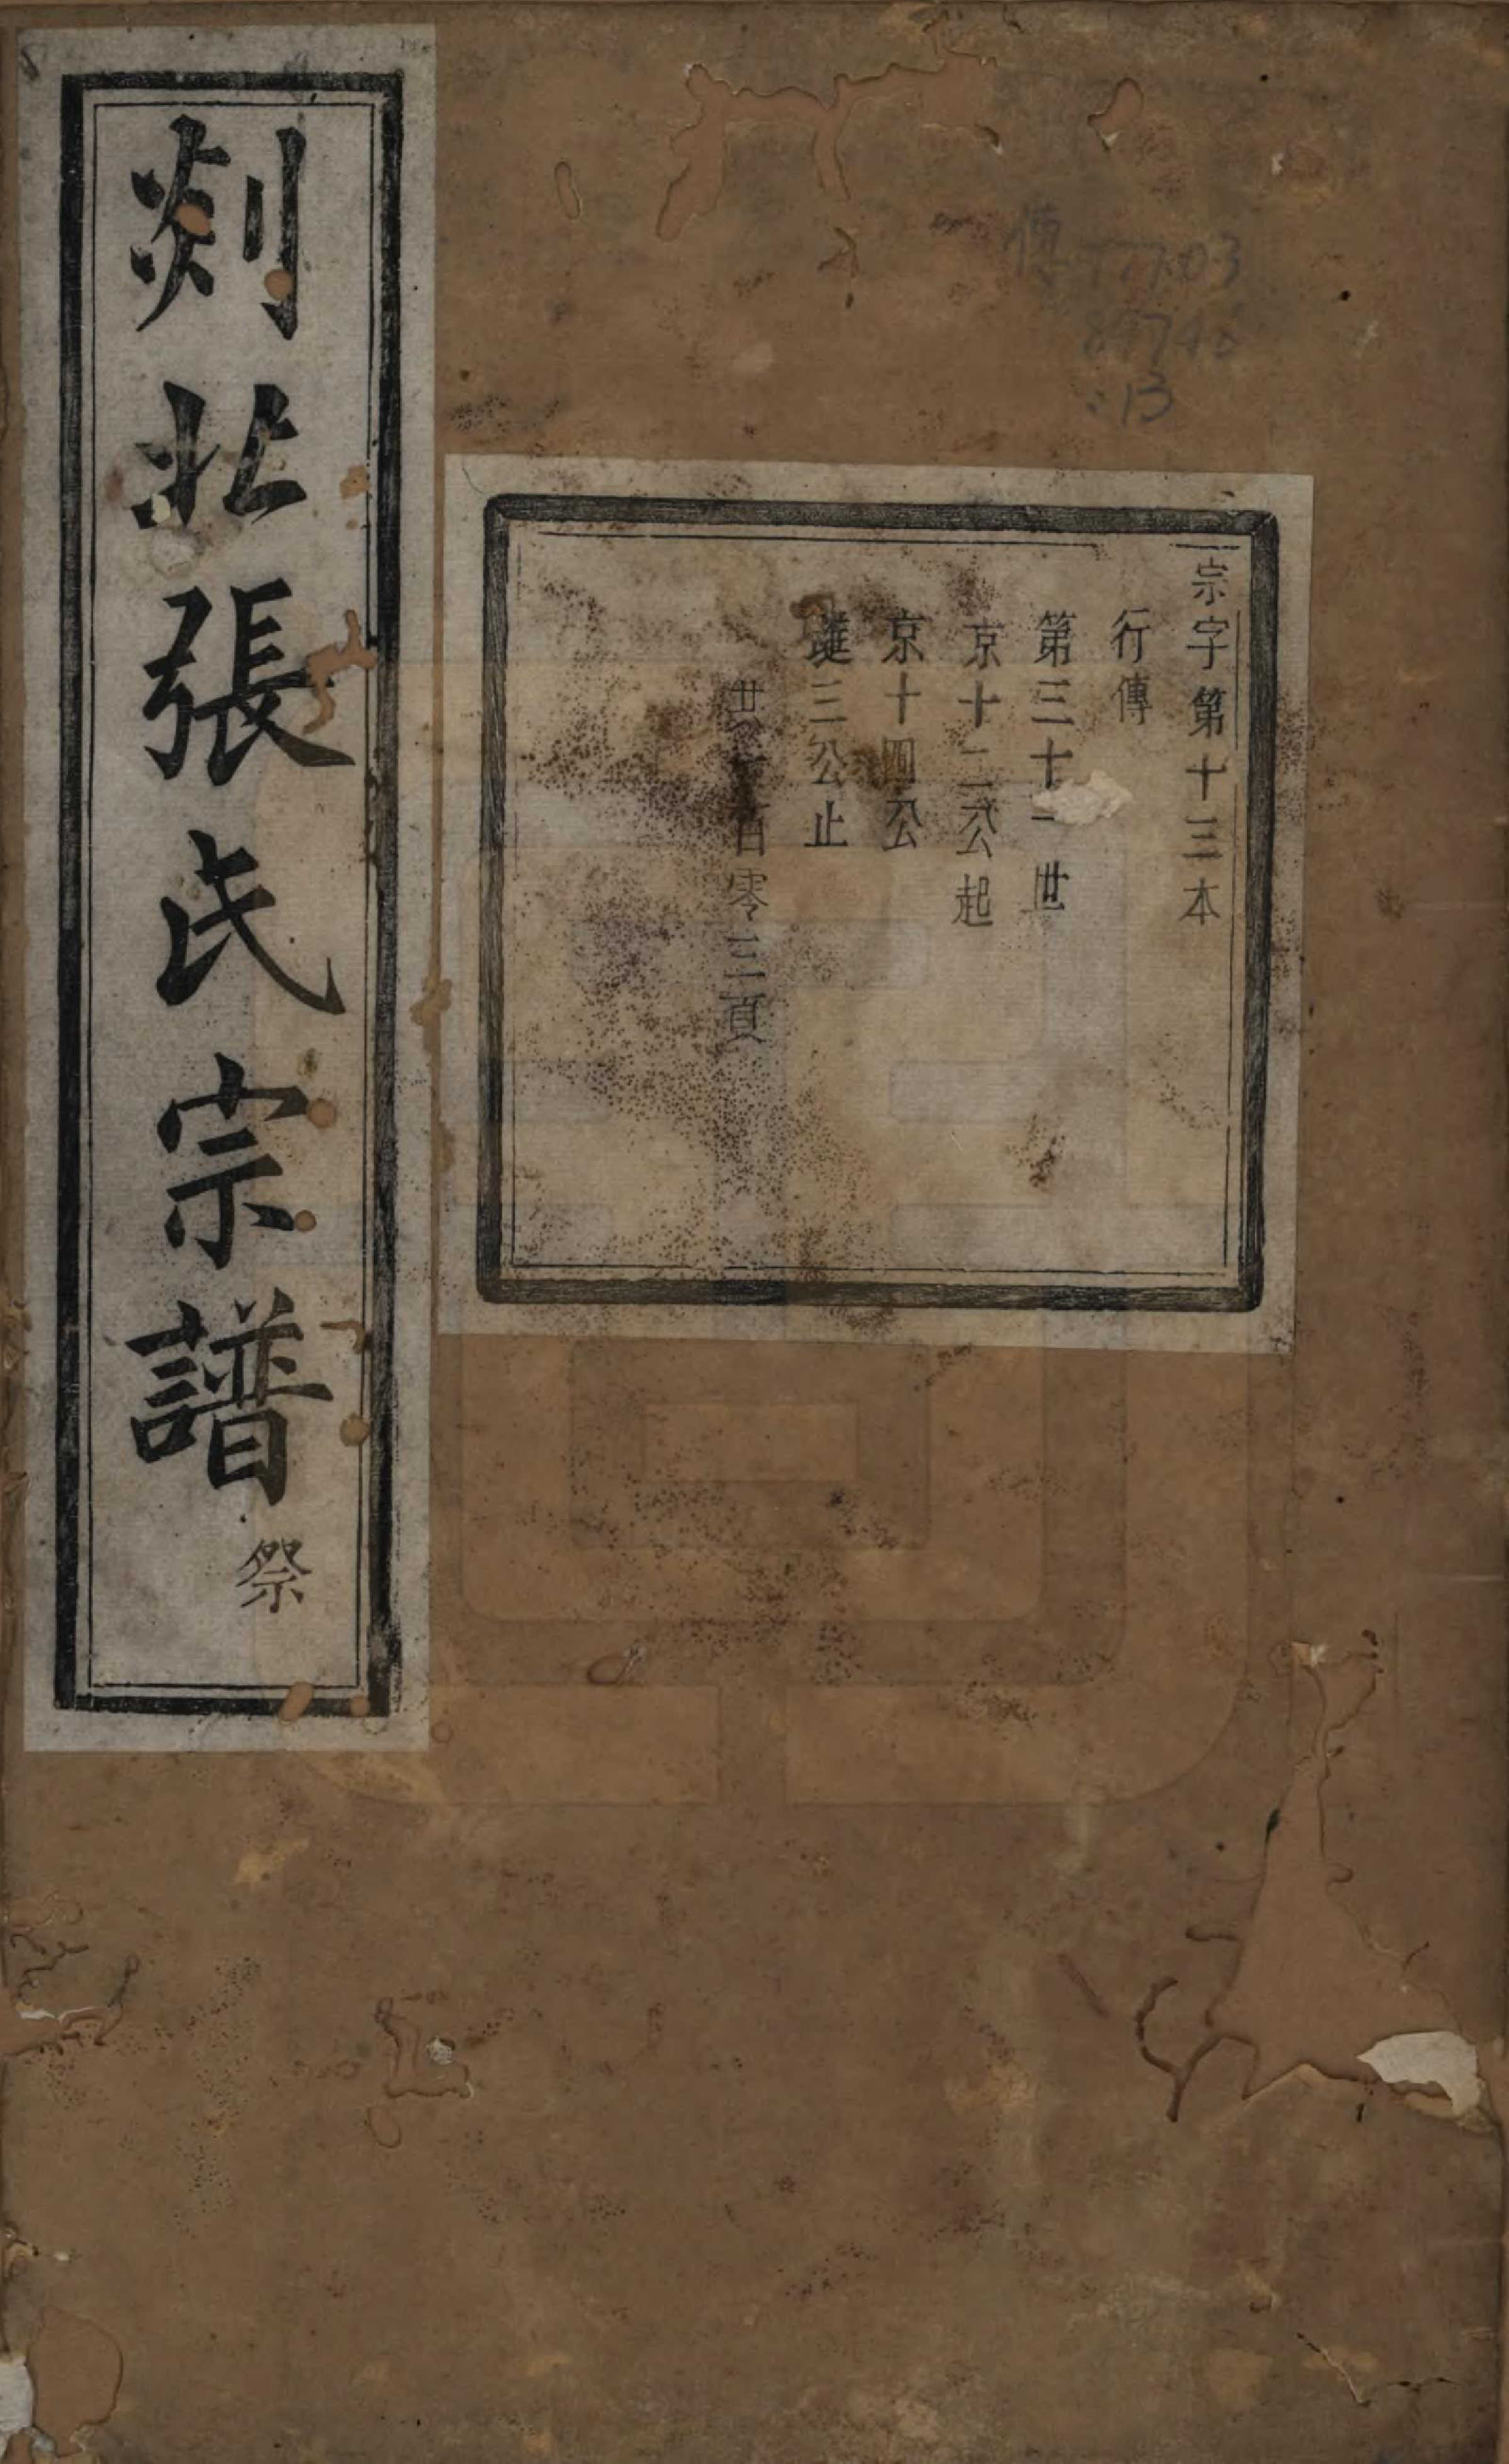 宗字第十三本
行傳
第三十二世
京十二公起
京十四公
璡三公止
共一百零三頁
剡北張氏宗譜
祭
傳
:13